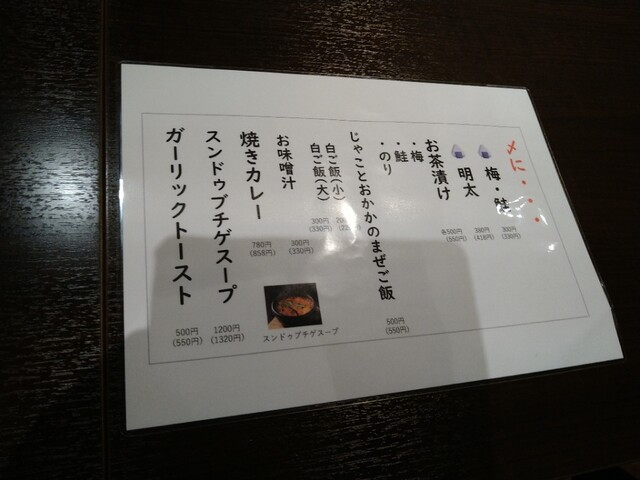 〆に・・・
梅・鮭
300円
(330円)
明太
380円
(418円)
お茶漬け
各500円
(550円)
・梅
・鮭
・のり
じゃことおかかのまぜご飯
500円
(550円)
白ご飯(小)
白ご飯(大)
300円
(330円)
お味噌汁
300円
(330円)
焼きカレー
780円
(858円)
スンドゥブチゲスープ
1200円
(1320円)
ガーリックトースト
500円
(550円)
スンドゥブチゲスープ